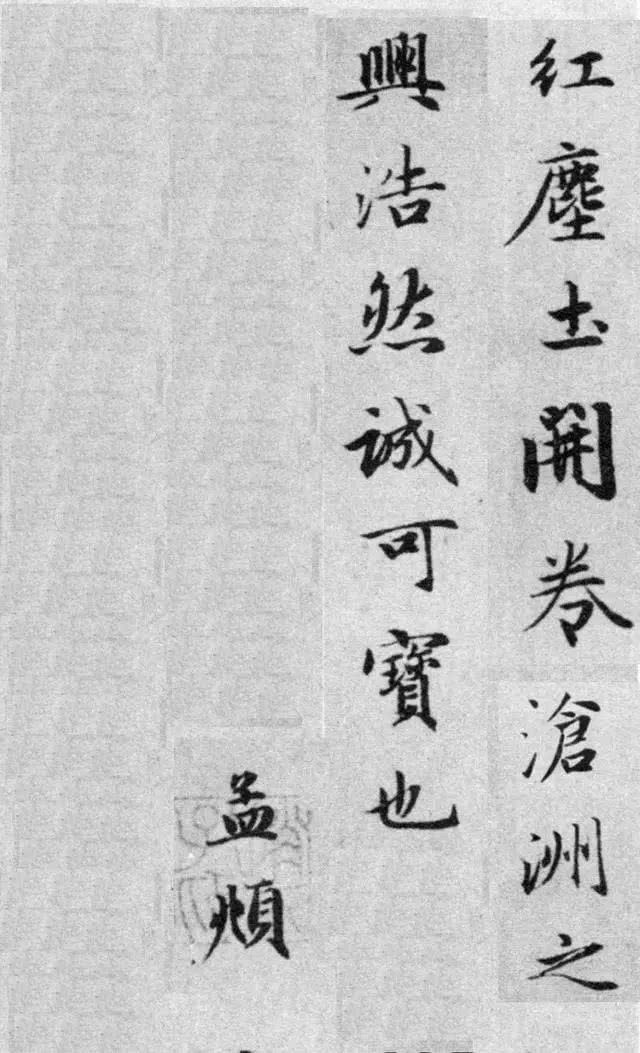 红塵土開卷滄洲之
興浩然誠可寶也
孟頫